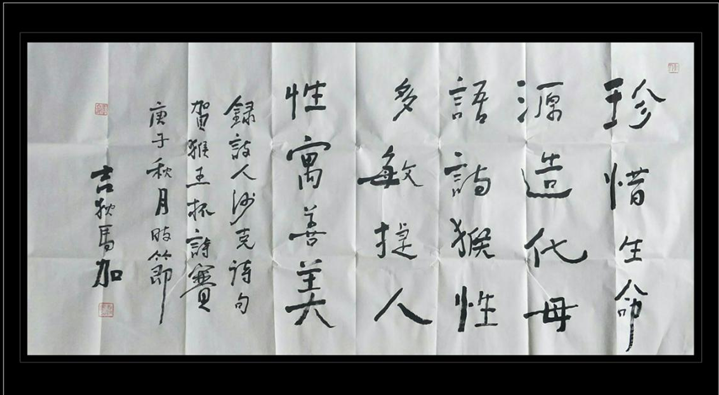 珍惜生命
源造代母
語詩猴性
多敏捷人
性寓善美
録詩人沙克詩句
賀猴王杯詩賽
庚子秋月時節
吉狄馬加